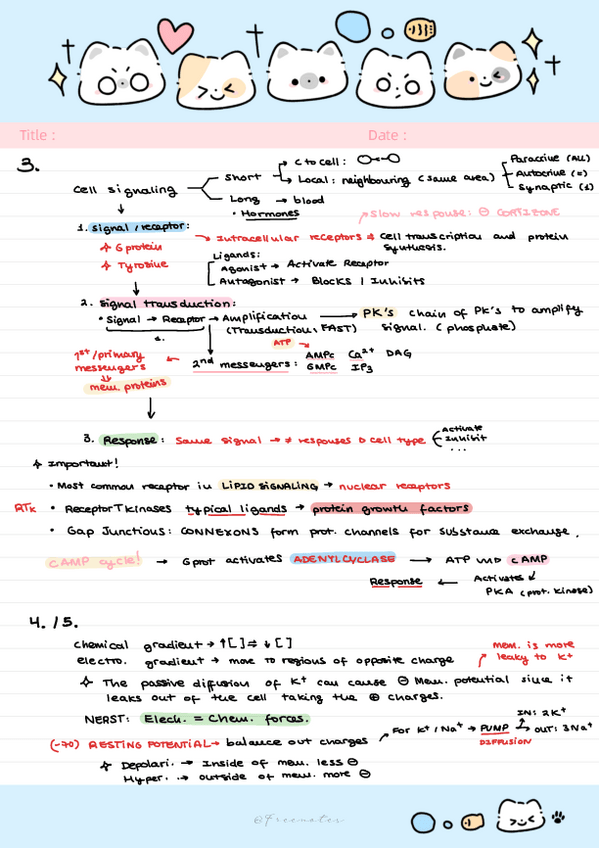 Title :
Date :
3.
Cell signaling
Short
C to cell :
Local : neighbouring (same area)
Paracrine (ALL)
Autocrine (=)
Synaptic (1)
Long → blood
• Hormones
Slow response: ⊖ CORTIZONE
1. Signal / receptor:
→ Intracellular receptors ⇒ Cell transcription and protein
synthesis.
✧ G protein
✧ Tyrosine
Ligands:
Agonist → Activate Receptor
Antagonist → Blocks / Inhibits
2. Signal transduction:
• Signal → Receptor → Amplification → PK's chain of PK's to amplify
(Transduction, FAST) signal. (phosphate)
1.
ATP
1st/primary
messengers
mem. proteins
2nd messengers: AMPc Ca²⁺ DAG
GMPc IP₃
3. Response: Same signal → ≠ responses Δ cell type
Activate
Inhibit
...
✧ Important!
• Most common receptor in LIPID SIGNALING → nuclear receptors
RTK
• Receptor T kinases typical ligands → protein growth factors
• Gap Junctions: CONNEXONS form prot. channels for substance exchange.
CAMP cycle! → G prot activates ADENYLCYCLASE → ATP into cAMP
Response ← Activates
PKA (prot. kinase)
4. / 5.
Chemical gradient → ↑[ ] ⇒ ↓[ ]
electro. gradient → move to regions of opposite charge
mem. is more
leaky to K+
✧ The passive diffusion of K⁺ can cause ⊖ Mem. potential since it
leaks out of the cell taking the ⊕ charges.
NERST: Elech. = Chem. forces.
(-70) RESTING POTENTIAL → balance out charges
For K⁺/Na⁺ → PUMP
DIFFUSION
IN: 2K⁺
OUT: 3Na⁺
✧ Depolari. → Inside of mem. less ⊖
Hyper. → outside of mem. more ⊖
@Freenoter